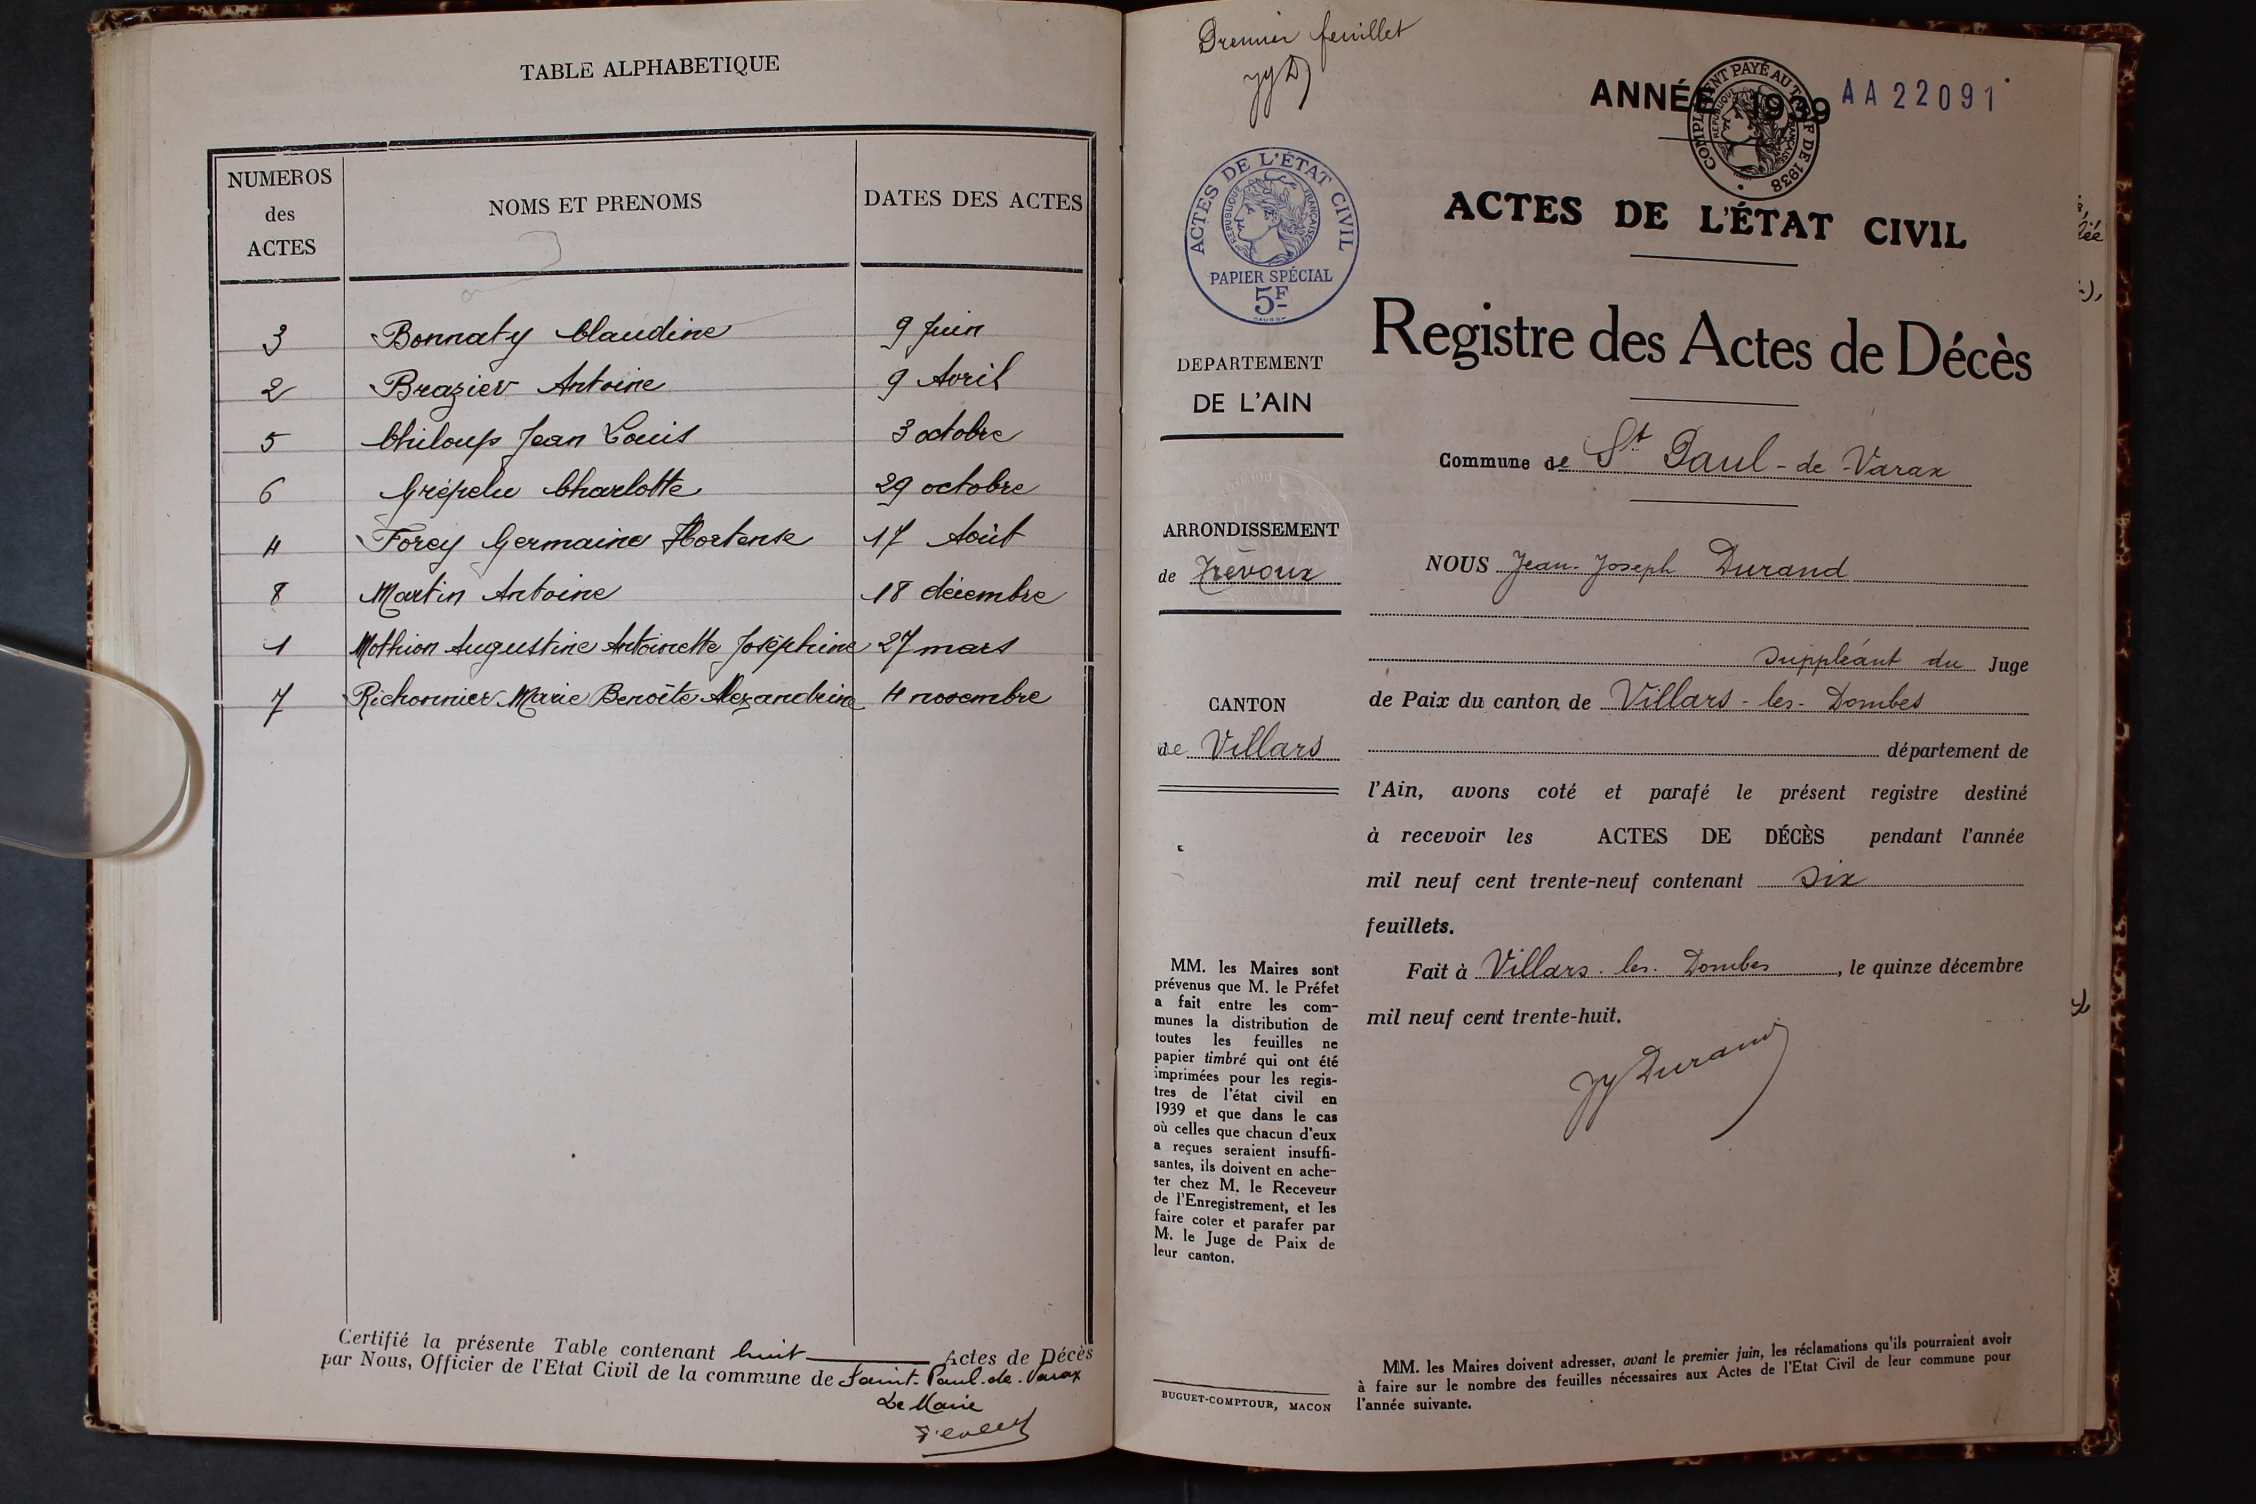 TABLE ALPHABETIQUE
NUMEROS des ACTES
NOMS ET PRENOMS
DATES DES ACTES
3 Bonnaty Claudine 9 Juin
2 Brazier Antoine 9 Avril
5 Chiloup Jean Louis 3 octobre
6 Crépelu Charlotte 29 octobre
4 Forey Germaine Hortense 17 Août
8 Martin Antoine 18 décembre
1 Mothion Augustine Antoinette Joséphine 27 mars
7 Richonnier Marie Benoîte Alexandrine 4 novembre
Certifié la présente Table contenant huit Actes de Décès
par Nous, Officier de l'Etat Civil de la commune de Saint-Paul-de-Varax
Le Maire
Premier feuillet
JJD
ANNÉE 1939 AA22091
COMPLEMENT PAYÉ AU TARIF DE 1938
REPUBLIQUE FRANÇAISE
ACTES DE L'ÉTAT CIVIL
REPUBLIQUE FRANÇAISE
PAPIER SPÉCIAL
5F
DEPARTEMENT
DE L'AIN
ARRONDISSEMENT
de Trévoux
CANTON
de Villars
MM. les Maires sont
prévenus que M. le Préfet
a fait entre les com-
munes la distribution de
toutes les feuilles ne
papier timbré qui ont été
imprimées pour les regis-
tres de l'état civil en
1939 et que dans le cas
où celles que chacun d'eux
a reçues seraient insuffi-
santes, ils doivent en ache-
ter chez M. le Receveur
de l'Enregistrement, et les
faire coter et parafer par
M. le Juge de Paix de
leur canton.
BUGUET-COMPTOUR, MACON
ACTES DE L'ÉTAT CIVIL
Registre des Actes de Décès
Commune de St Paul-de-Varax
NOUS Jean-Joseph Durand
suppléant du Juge
de Paix du canton de Villars-les-Dombes
département de
l'Ain, avons coté et parafé le présent registre destiné
à recevoir les ACTES DE DÉCÈS pendant l'année
mil neuf cent trente-neuf contenant six
feuillets.
Fait à Villars-les-Dombes, le quinze décembre
mil neuf cent trente-huit.
JJ Durand
MM. les Maires doivent adresser, avant le premier juin, les réclamations qu'ils pourraient avoir
à faire sur le nombre des feuilles nécessaires aux Actes de l'Etat Civil de leur commune pour
l'année suivante.